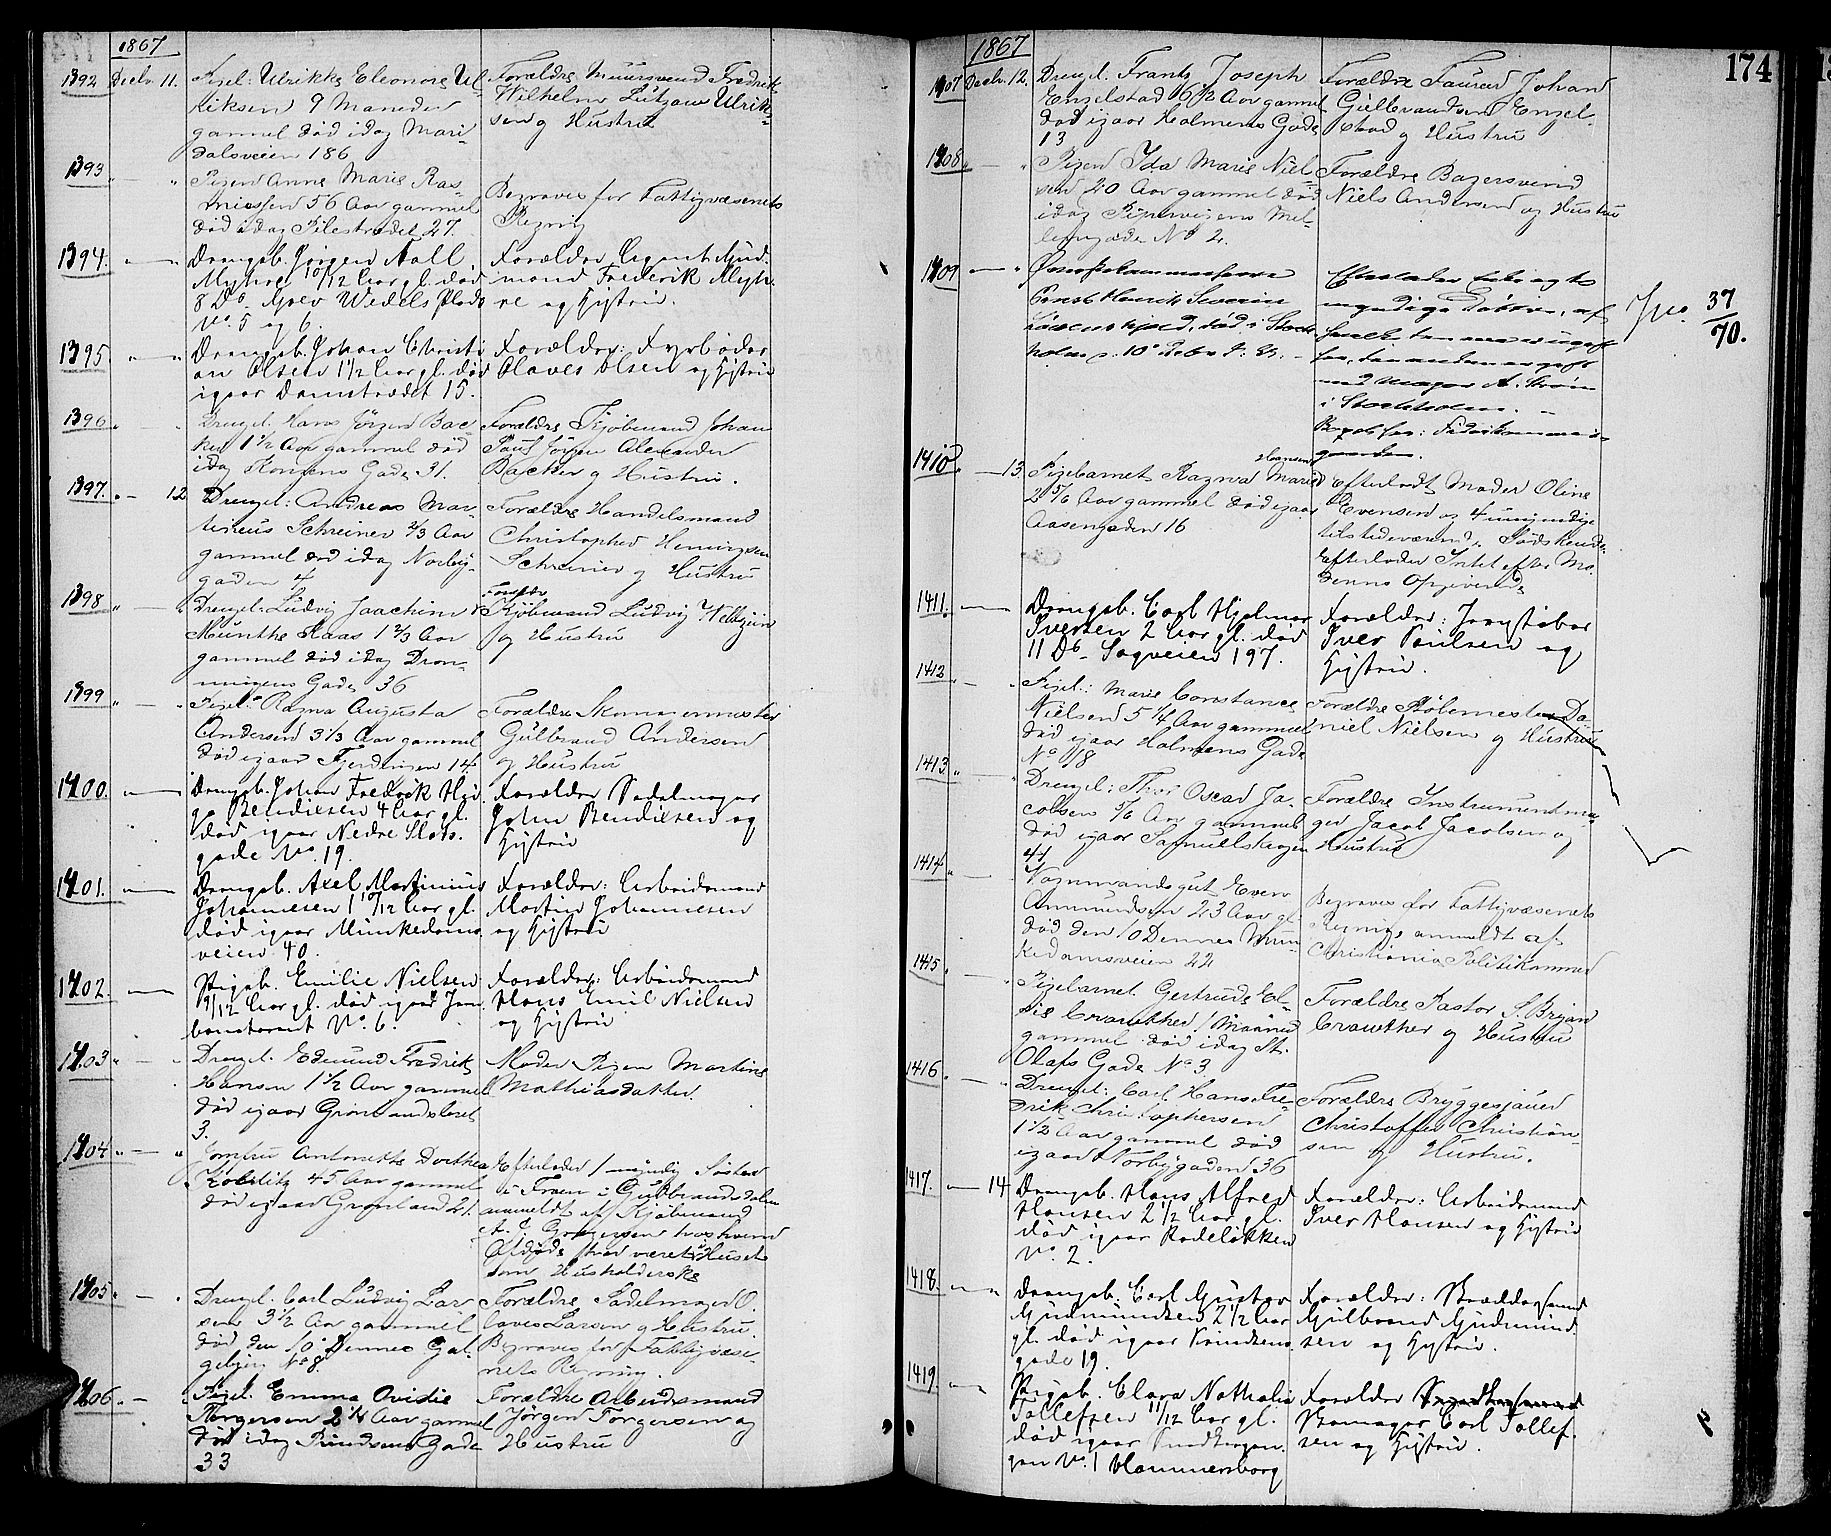 1867
1392 Decbr. 11. Pigel: Ulrikke Eleonore Ul-
riksen 9 Maneder
gammel død idag Mari-
dalsveien 186
Forældre Muursvend Fredrik
Wilhelm Lützow Ulrik-
sen og Hustru
1393 Pigen Anne Marie Ras-
mussen 56 Aar gammel
død idag Pilestrædet 27.
Begraves for Fattigvæsenets
Regning
1394. Drengeb. Jørgen Aall
Myhre 10/12 Aar gl. død
8 Ds. Grev Wedels Plads
No. 5 og 6.
Forældre: Agent
Frederik Myh-
re og Hustru.
1395 Drengeb. Johan Christi
an Olsen 1 1/2 Aar gl. død
igaar Damstrædet 15.
Forældre: Fyrbøder
Olaves Olsen og Hustru
1396 Drengeb. Hans Jörgen Bac-
ker 1 1/2 Aar gammel død
idag Kongens Gade 31.
Forældre Kjøbmand Johan
Paul Jörgen Alexander
Backer og Hustru.
1397. 12 Drengeb: Andreas Mar-
tinius Schreiner 2/3 Aar
gammel død idag Norby-
gaden 4
Forældre Handelsmand
Christopher Henningsen
Schreiner og Hustru
1398 Drengeb: Ludvig Joachim
Munthe Kaas 1 2/3 Aar
gammel død idag Dron-
ningens Gade 36
Forældre
Kjøbmand Ludvig
og Hustru
1399 Pigeb: Ragna Augusta
Andersen 3 1/3 Aar gammel
død igaar Fjerdingen 14.
Forældre Skomagermester
Gulbrand Andersen
og Hustru
1400. Drengeb. Johan Fredrik Hu
go Bendixen 4 Aar gl.
død igaar Nedre Slots-
gade No. 19.
Forældre Sadelmager
John Bendixen og
Hustru
1401. Drengeb. Axel Martinius
Johannesen 1 10/12 Aar gl.
død igaar Munkedams-
veien 40.
Forældre: Arbeidsmand
Martin Johannesen
og Hustru
1402. Pigeb. Emilie Nielsen
9/12 Aar gl. død igaar Jern
banetorvet No. 6.
Forældre: Arbeidsmand
Hans Emil Nielsen
og Hustru
1403 Drengeb. Edmund Fredrik
Hansen 1 1/2 Aar gammel
død igaar Grønlandsleret
3.
Moder Pigen Martine
Mathiasdatter.
1404 Jomfru Antonette Dorthea
Koblitz 45 Aar gammel
død igaar Grønland 21.
Efterlader 1 myndig Søster
i Froen i Gulbrandsdalen
anmeldt af Kjøbmand
A. C. Gregersen hos hvem
Afdøde har været i Huset
som Husholderske
1405 Drengeb. Carl Ludvig Lar
sen 3 1/2 Aar gammel
død den 10 Dennes Gal-
geberg No 8.
Forældre Sadelmager O-
laves Larsen og Hustru.
Begraves for Fattigvæse-
nets Regning.
1406. Pigeb. Emma Ovidie
Torgersen 2 1/4 Aar gammel
død idag Rundsens Gade
33
Forældre Arbeidsmand
Jörgen Torgersen og
Hustru
1867
174
1407 Decbr. 12. Drengeb. Frantz Joseph
Engelstad 6 1/2 Aar gammel
død igaar Holmens Gade
13
Forældre Faured Johan
Gulbrandsen Engel-
stad og Hustru
1408 Pigen Ida Marie Niel-
sen 20 Aar gammel død
idag Pipervigens Mel-
lemgade No 2.
Forældre Bagersvend
Niels Andersen og Hustru
1409
Severin
Løvenskjold, død i Stock
holm d. 10 Decbr d. A.
Efterlader Enke og to
myndige Døttre, af
i Stockholm.
37
70.
1410. 13. Pigebarnet Ragna Marie Hansen
2 5/6 Aar gammel død igaar
Aasengaden 16
Efterladt Moder Oline
Evensen og 4 umyndige
tilstedeværende Sødskende.
Efterlader Intet efter Mo-
derens Opgivende
1411. Drengeb. Carl Hjalmar
Iversen 2 Aar gl. død
11 Ds. Sagveien 197.
Forældre: Jernstøber
Iver Paulsen og
Hustru.
1412 Pigeb.: Marie Constance
Nielsen 5 1/4 Aar gammel
død igaar Holmens Gade
No 18
Forældre Pølemester Da-
niel Nielsen og Hustru
1413 Drengeb: Thor Oscar Ja-
cobsen 5/6 Aar gammel
død igaar Samuelskrogen
41
Forældre Instrumentma-
ger Jacob Jacobsen og
Hustru
1414 Vognmandsgut Even
Ammundsen 23 Aar gl.
død den 10 Dennes Mun
kedamsveien 22
Begraves for Fattigvæsenets
Regning anmeldt af
Christiania Politikammer
1415 Pigebarnet Gertrude El-
sie Crauther 1 Maaned
gammel død idag St.
Olafs Gade No 3
Forældre Pastor S. Brijan
Crauther og Hustru
1416 Drengeb: Carl Hans Fre-
drik Christophersen
1 1/2 Aar gammel død
igaar Norbygaden 36
Forældre Bryggesjauer
Christoffer Christian-
sen og Hustru.
1417. 14 Drengeb. Hans Alfred
Hansen 2 1/2 Aar gl.
død igaar Rodeløkken
No. 2.
Forældre: Arbeidsmand
Iver Hansen og Hustru
1418. Drengeb. Carl Gustav
Gudmundsen 2 1/2 Aar
gl. død igaar Rundsens
gade 19.
Forældre: Skræddersvend
Gulbrand Gudmund-
sen og Hustru.
1419. Pigeb. Clara Nathalie
Tollefsen 11/12 Aar gl.
død igaar
No. 1 Hammersborg
Forældre
Skomager Carl Tollef-
sen og Hustru.